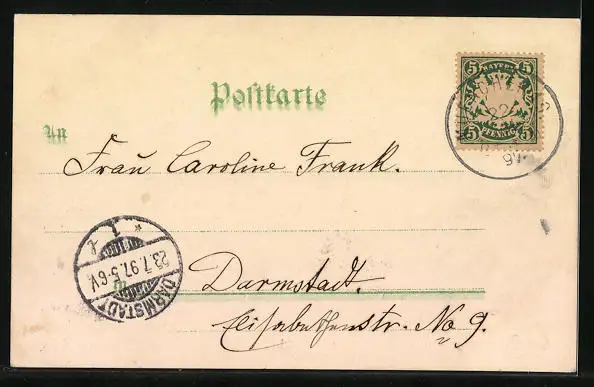 Postkarte
BAYERN
5 5
5 PFENNIG 5
22
97
An
Frau Caroline Frank.
* 1 *
23.7.97.5-6V.
DARMSTADT
Darmstadt.
Elisabethenstr. No 9.